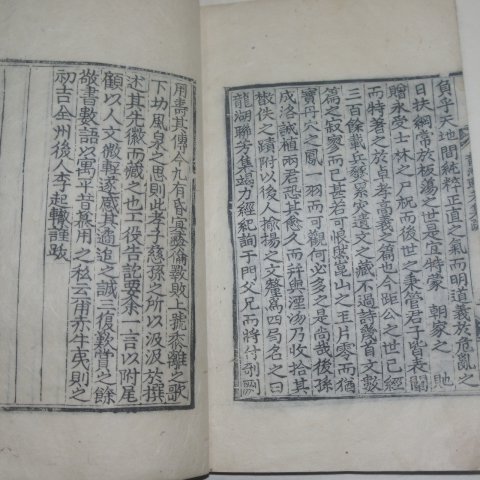 負乎天地間純粹正直之氣而明道義於危亂之
日扶綱常於板蕩之世是宜特蒙　朝家之　貤
贈永受士林之尸祝而後世之秉管君子皆表闡
而特著之於卓孝高義之篇也今距公之世已經
三百餘載兵燹累突遺文之藏不過詩若文數
篇之寂寥而已甚若可恨然崑山之玉片零而猶
寶丹穴之鳳一羽而可觀何必多之爲尙哉後孫
成洛誠植兩君恐其愈久而幷與湮沕乃收拾其
散佚之蹟附以後人揄揚之文釐爲四局名之曰
龍湖聯芳集竭力經紀詢于門父兄而將付剞劂
用壽其傳今九有昏冥彛倫斁敗上號黍離之歌
下切風泉之思則此孝子慈孫之所以汲汲於撰
述其先徽而藏之也工役告訖要余一言以附尾
顧以人文微輕遂感其適追之誠三復歎賞之餘
敬書數語以寓平昔慕用之私云甫亦牛曳則之
初吉全州後人李起轍謹跋